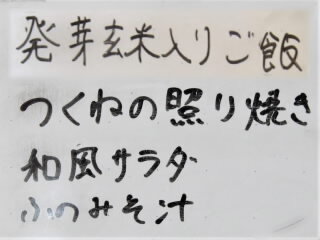 発芽玄米入りご飯
つくねの照り焼き
和風サラダ
ふのみそ汁